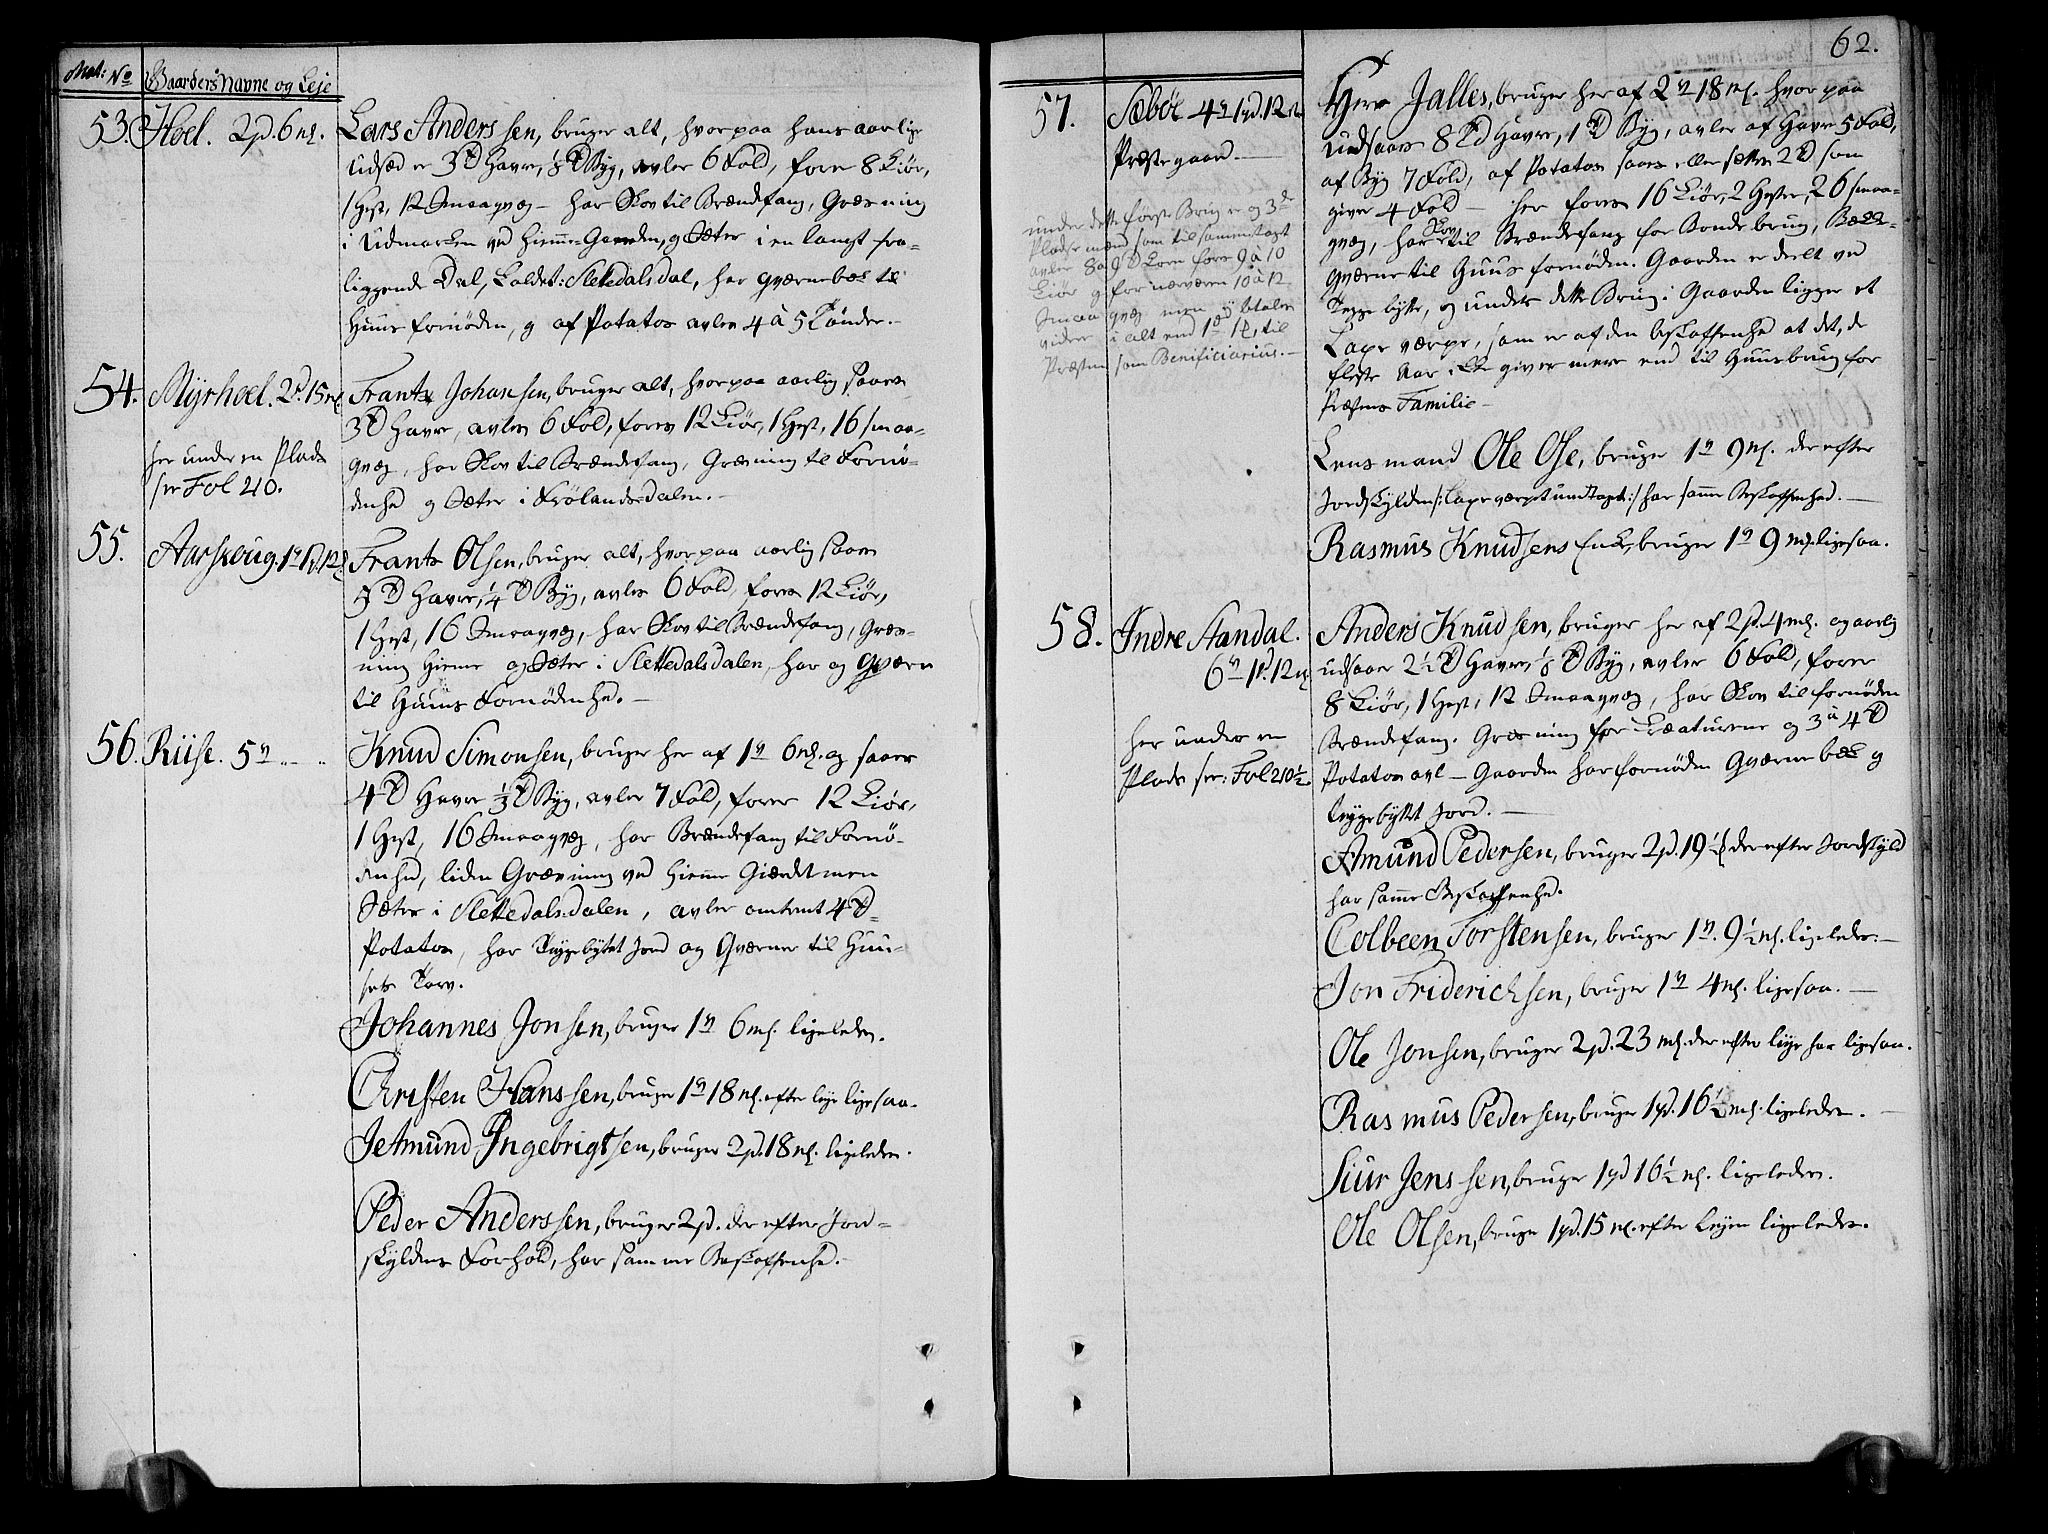 Mat: No
Gaardens Navne og Leje
53. Hoel. 2pd. 6 mk.
Lars Anderssen, bruger alt, hvorpaa hans aarlige
Udsæd er 3 Td Havre, ⅛ Td Byg, avler 6 Fold, foer 8 Kiør,
1 Hest, 12 Smaaqvæg - har Skov til Brændefang, Græsning
i Udmarken ved Hiemme-Gaarden, og Sæter i en langt fra-
liggende Dal, Kaldet: Slettedalsdal, har Qværnebæk til
Huus fornøden, og af Potatos avler 4 à 5 Tønder.-
54. Myrhoel. 2pd. 15 mk.
her under en Plads
see Fol 210.
Frantz Johansen, bruger alt, hvorpaa aarlig saaes
3 Td Havre, avler 6 Fold, foer 12 Kiør, 1 Hest, 16 smaa-
qvæg, har Skov til Brændefang, Græsning til Fornø-
denhed og Sæter i Frølandsdalen.-
55. Aarskoug. 1 v 1 pd. 12 mk
Frantz Olsen, bruger alt, hvorpaa aarlig saaes
5 Td Havre, ¼ Td Byg, avler 6 Fold, foer 12 Kiør,
1 Hest, 16 Smaaqvæg, har Skov til Brændefang, Græs-
ning hieme og Sæter i Slettedalsdalen, har og Qværn
til Huuus Fornødenhed.-
56. Riise. 5 v " - "
Knud Simonsen, bruger her af 1 v 6 mk. og saaer
4 Td Havre ⅓ Td Byg, avler 7 Fold, foer 12 Kiør,
1 Hest, 16 Smaaqvæg, har Brændefang til Fornø-
denhed, liden Græsning ved Hieme Giærdet men
Sæter i Slettedalsdalen, avler omtrent 4 Td
Potatos, har Teigebyttet Jord og Qværner til Huu-
sets Tarv.
Johannes Jonsen, bruger 1 v 6 mk. ligeledes.
Christen Hanssen, bruger 1 v 18 mk. efter leje ligesaa.
Jetmund Ingebrigtsen, bruger 2pd. 18 mk. ligeledes.
Peder Anderssen, bruger 2pd. derefter Jord-
skyldens Forhold, har samme Beskaffenhed.-
62.
57. Sæbøe 4 v 1 pd. 12 mk
Præstegaard.-
under dette første Brug er og 3de
Pladsemænd som tilsammentagt
avler 8 à 9 Td Korn foer 9 à 10
Kiør og 10 à 12
Smaaqvæg men ey betaler
videre i alt end til
Præsten som Benificiarius.-
Herr Jalles, bruger her af 2 v 18 mk. hvorpaa
udsaaes 8 Td Havre, 1 Td Byg, avler af Havre 5 Fold,
af Byg 7 Fold, af Potatos saaes eller sættes 2 Td som
giver 4 Fold - her foer 16 Kiør, 2 Hester, 26 smaa-
qvæg, har Skov til Brændefang for Bondebrug, Bæk-
qværne til Huus fornøden. Gaarden er deelt ved
Teige bytte, og under dette Brug i Gaarden ligger et
Laxe værpe, som er af den beskaffenhed at det, de
fleste Aar ikke giver mere end til Huusbrug for
Præstens Familie -
Lensmand Ole Ose, bruger 1 v 9 mk. derefter
Jordskylden /: laxeværpet undtaget :/ har samme Beskaffenhed.-
Rasmus Knudsens Enke, bruger 1 v 9 mk. ligesaa.
58. Indre Standal.
6 v 1 pd. 12 mk
her under en
Plads see: Fol 210½.
Anders Knudsen, bruger her af 2pd. 4 mk. og aarlig
udsaaer 2½ Td Havre, ⅛ Td Byg, avler 6 Fold, foer
8 Kiør, 1 Hest, 12 Smaaqvæg, har Skov til fornøden
Brændefang. Græsning for Kreaturene og 3 à 4 Td
Potatos avl - Gaarden har fornøden Qværnebæk og
teigebyttet Jord.-
Amund Pedersen, bruger 2pd. 19½ mk derefter Jordskyld
har samme Beskaffenhed.
Colbeen Torstensen, bruger 1 v. 9½ mk. ligeledes.-
Jon Friderichsen, bruger 1 v 4 mk. ligesaa.-
Ole Jonsen, bruger 2pd. 23 mk. derefter leje har ligesaa.
Rasmus Pedersen, bruger 1pd. 16½ mk. ligeledes.-
Siur Jenssen, bruger 1pd 16½ mk. ligeledes.
Ole Olsen, bruger 1pd. 15 mk. efter Lejen ligeledes.